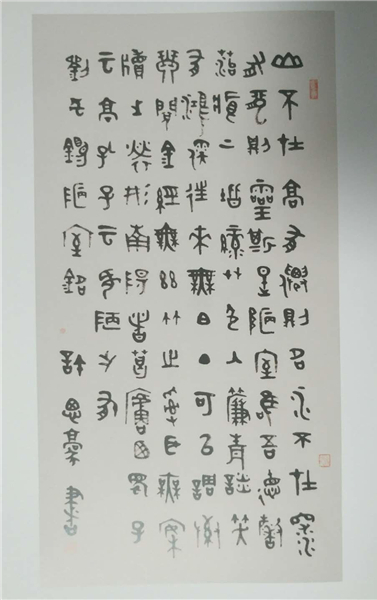 山不在高有僊則名水不在深
有龍則靈斯是陋室惟吾德馨
苔痕上階緑艸色入簾青談笑
有鴻儒往來無白丁可以調素
琴閱金經無絲竹之亂耳無案
牘之勞形南陽諸葛廬西蜀子
云亭孔子云何陋之有
劉禹錫陋室銘 思豪書